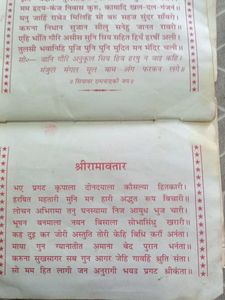 मम हृदय-कंज निवास कुरु, कामादि खल-दल-गंजनं॥
मनु जाहिं राचेउ मिलिहि सो बरु सहज सुंदर साँवरो।
करुना निधान सुजान सीलु सनेहु जानत रावरो॥
एहि भाँति गौरि असीस सुनि सिय सहित हियँ हरषीं अली।
तुलसी भवानिहि पूजि पुनि पुनि मुदित मन मंदिर चली॥
सो०- जानि गौरि अनुकूल सिय हिय हरषु न जाइ कहि।
मंजुल मंगल मूल बाम अंग फरकन लगे॥
॥ सियावर रामचन्द्रकी जय॥
श्रीरामावतार
भए प्रगट कृपाला दीनदयाला कौसल्या हितकारी।
हरषित महतारी मुनि मन हारी अद्भुत रूप बिचारी॥
लोचन अभिरामा तनु घनस्यामा निज आयुध भुज चारी।
भूषन बनमाला नयन बिसाला सोभासिंधु खरारी॥
कह दुइ कर जोरी अस्तुति तोरी केहि बिधि करौं अनंता।
माया गुन ग्यानातीत अमाना बेद पुरान भनंता॥
करुना सुखसागर सब गुन आगर जेहि गावहिं श्रुति संता।
सो मम हित लागी जन अनुरागी भयउ प्रगट श्रीकंता॥